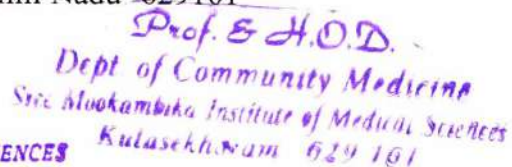 Nadu 629161
Prof. & H.O.D.
Dept of Community Medicine
Sree Mookambika Institute of Medical Sciences
ENCES Kulasekharam 629 161